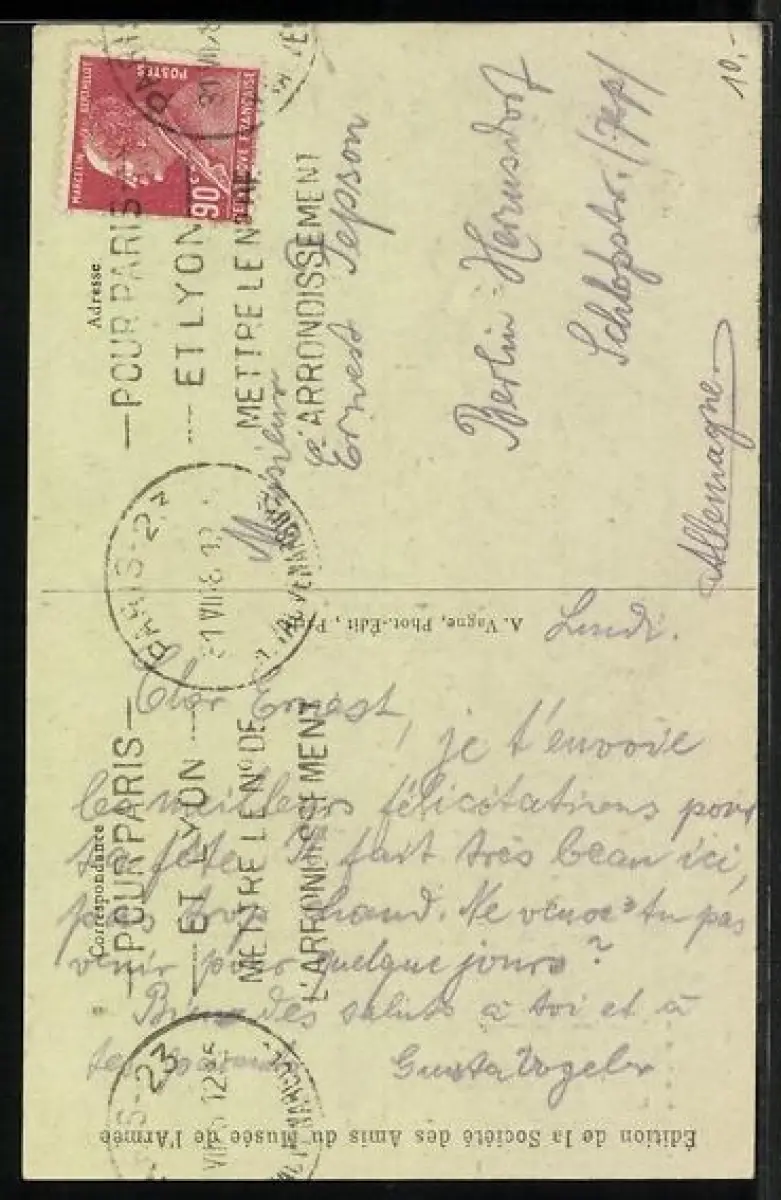 10.-
MARCELIN BERTHELOT
POSTES
90 c
RÉPUBLIQUE FRANÇAISE
Adresse
—POUR PARIS—
---- ET LYON
METTRE LE N° DE
L'ARRONDISSEMENT
Monsieur
Ernest Jepson
Berlin
Allemagne
PARIS-23
A. Vagne, Phot.-Édit
Correspondance
—POUR PARIS—
—ET LYON ----
METTRE LE N° DE
L'ARRONDISSEMENT
PARIS-23
Lundi.
Cher Ernest,
je t'envoie
les meilleurs félicitations pour
ta fête. Il fait très beau ici,
pas trop chaud. Ne veux-tu pas
venir pour quelque jours?
Bien des saluts à toi et à
tes parents
Édition de la Société des Amis du Musée de l'Armée